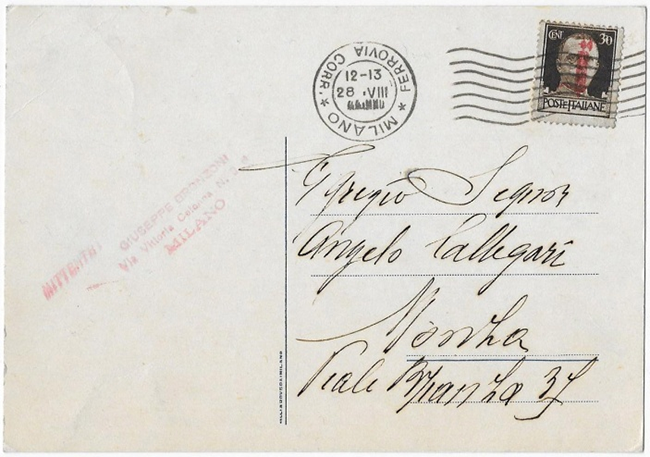 MILANO
FERROVIA CORR.
12-13
28 VIII
CENT 30
POSTE ITALIANE
MITTENTE:
GIUSEPPE BRONZONI
Via Vittoria Colonna N.
MILANO
Egregio Signor
Angelo Callegari
Monza
Viale Brianza